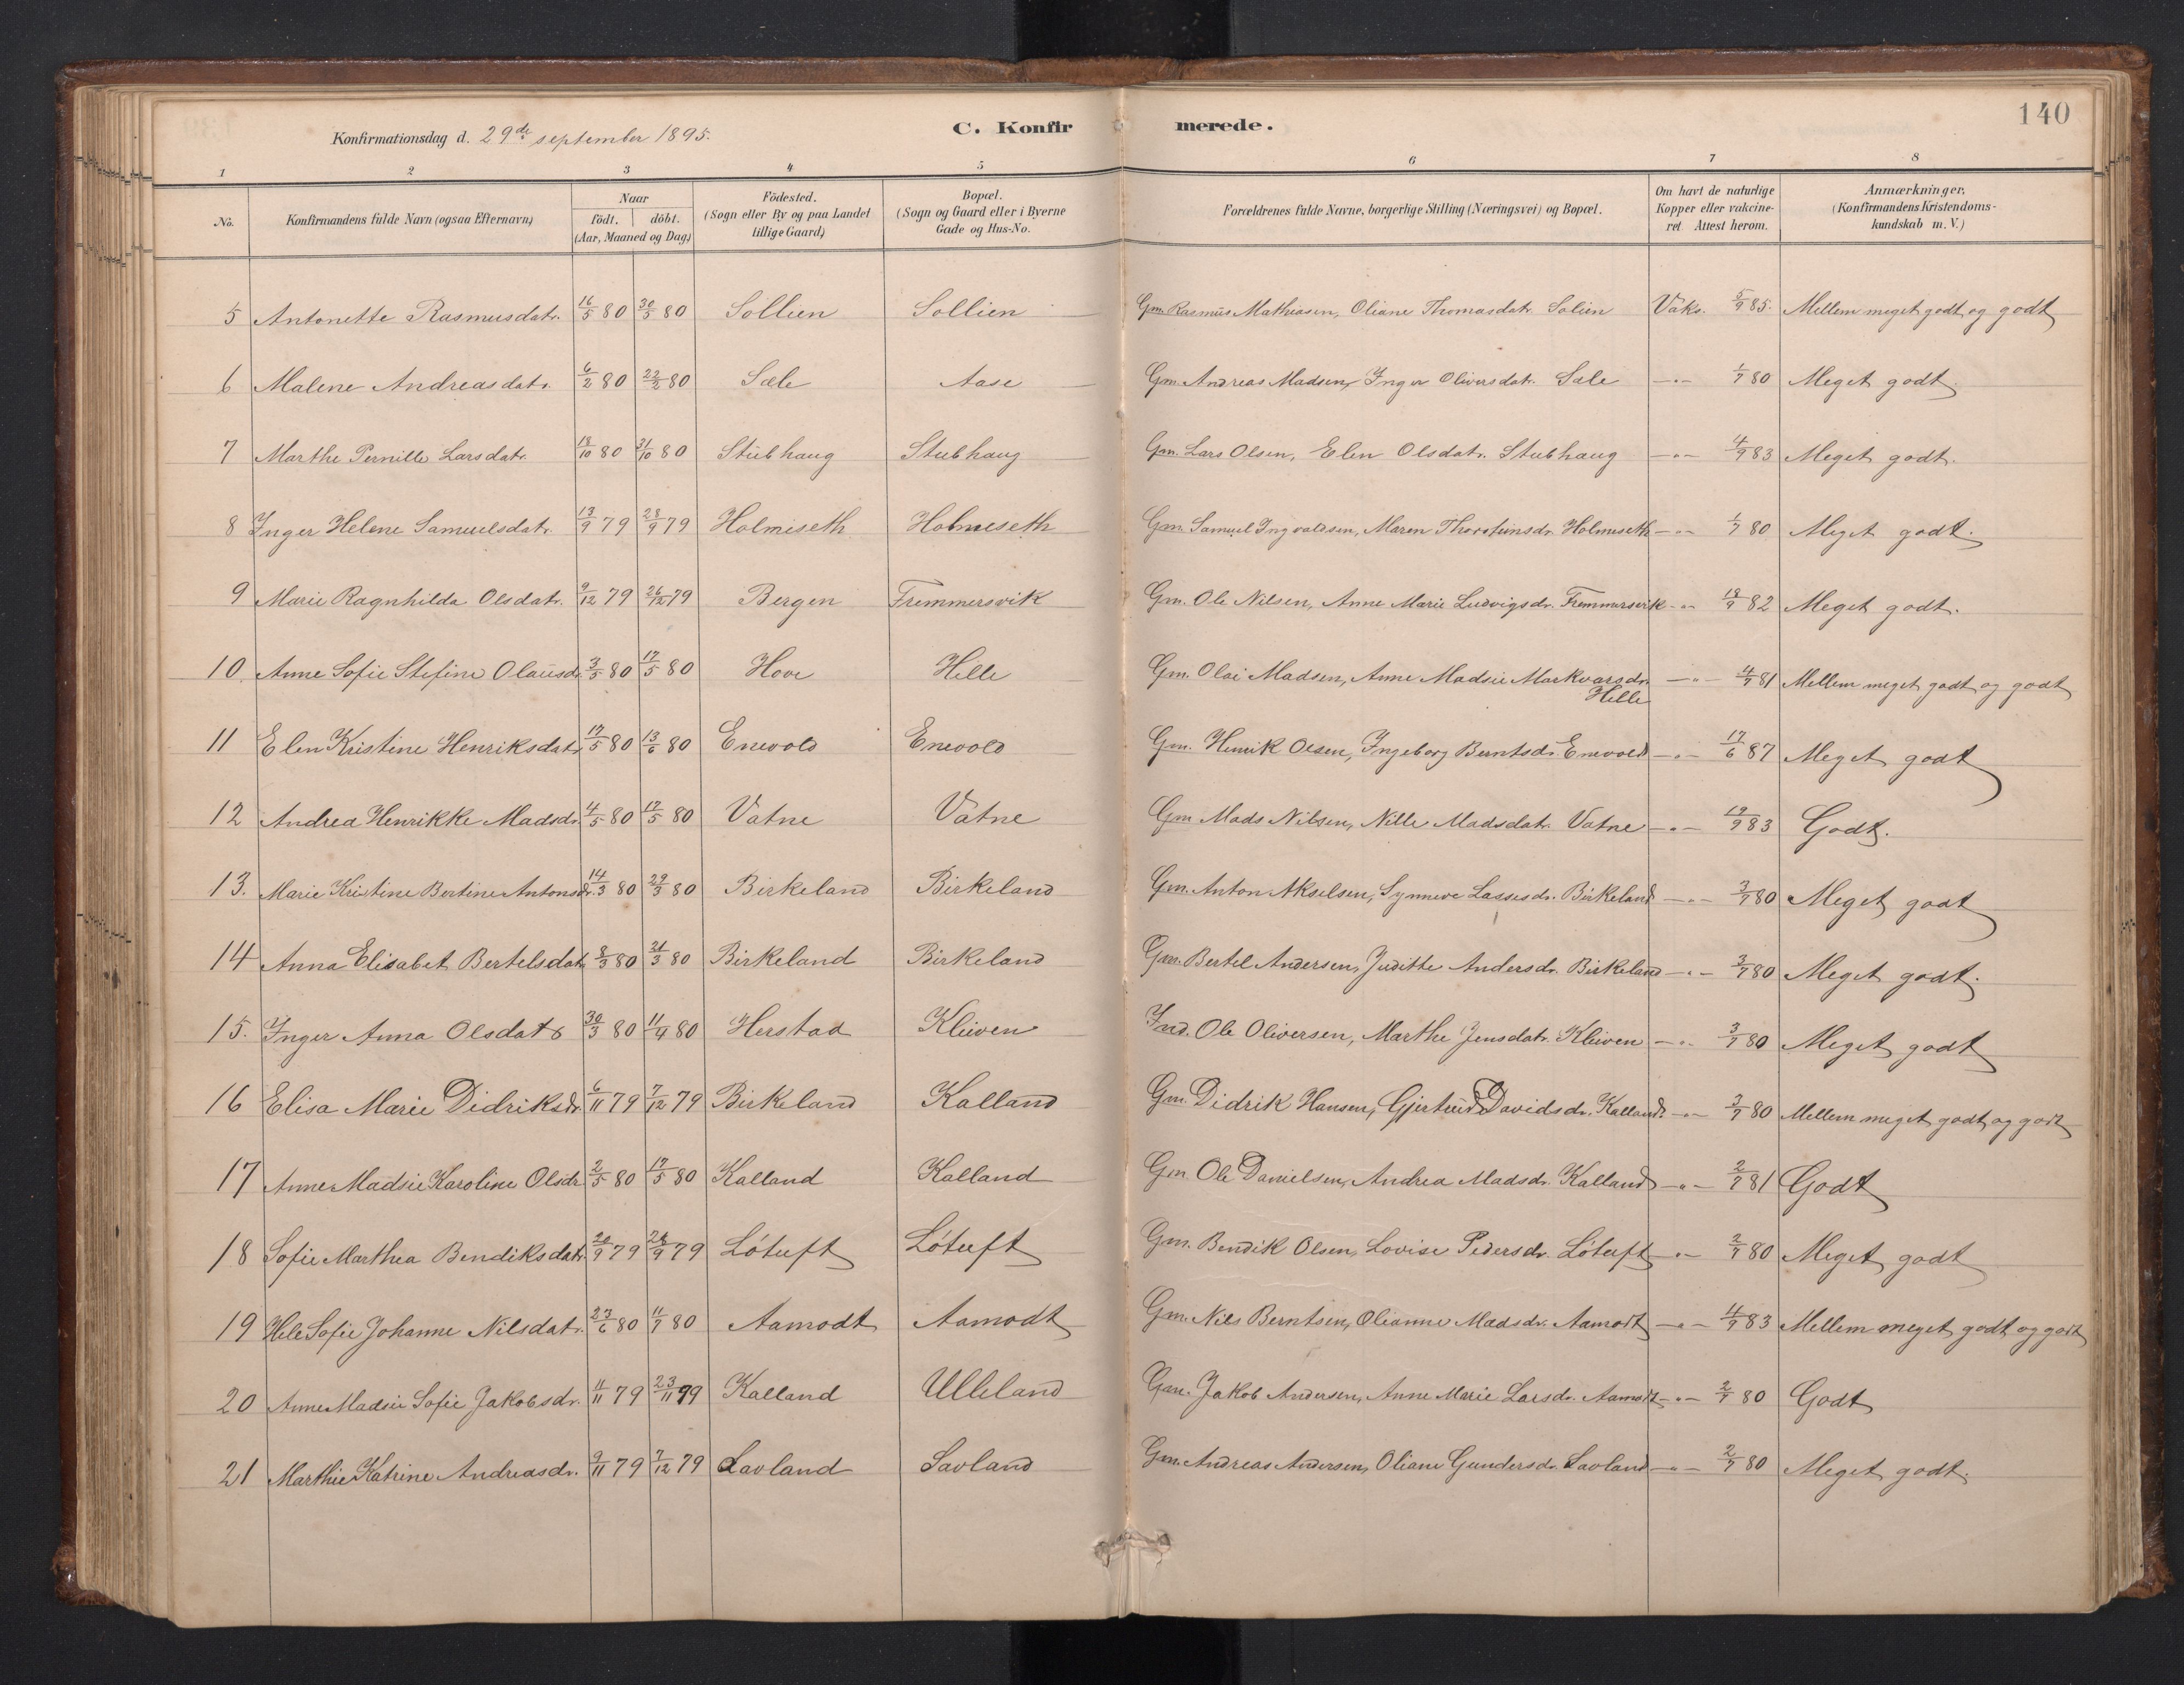 140
Konfirmationsdag d. 29de september 1895.
C. Konfirmerede.
1 2 3 4 5 6 7 8
No. Konfirmandens fulde Navn (ogsaa Efternavn) Naar födt. döbt. (Aar, Maaned og Dag) Födested. (Sogn eller By og paa Landet tillige Gaard) Bopæl. (Sogn og Gaard eller i Byerne Gade og Hus-No. Forældrenes fulde Navne, borgerlige Stilling (Næringsvei) og Bopæl. Om havt de naturlige Kopper eller vakcineret Attest herom. Anmærkninger, (Konfirmandens Kristendomskundskab m. V.)
5 Antonette Rasmusdatr. 16/5 80 30/5 80 Sollien Sollien Gm. Rasmus Mathiasen, Oliane Thomasdatr. Solien Vaks. 5/9 85. Mellem meget godt og godt
6 Malene Andreasdatr. 6/2 80 22/2 80 Sæle Aase Gm. Andreas Madsen, Inger Oliversdatr. Sæle —"— 1/7 80 Meget godt
7 Marthe Pernille Larsdatr. 18/10 80 31/10 80 Stubhaug Stubhaug Gm. Lars Olsen, Elen Olsdatr. Stubhaug —"— 4/9 83 Meget godt.
8 Inger Helene Samuelsdatr. 13/9 79 28/9 79 Holmeseth Holmeseth Gm. Samuel Ingvaldsen, Maren Thorsteinsdr. Holmeseth —"— 1/7 80 Meget godt.
9 Marie Ragnhilda Olsdatr. 9/12 79 26/12 79 Bergen Fremmersvik Gm. Ole Nilsen, Anne Marie Ludvigsdr. Fremmersvik —"— 18/9 82 Meget godt.
10 Anne Sofie Stefine Olausdr. 3/5 80 17/5 80 Hove Hille Gm. Olai Madsen, Anne Madsie Markvarsdr. Hille —"— 4/9 81 Mellem meget godt og godt
11 Elen Kristine Henriksdatr. 17/5 80 13/6 80 Enevold Enevold Gm. Henrik Olsen, Ingeborg Berntsdr. Enevold —"— 17/6 87 Meget godt
12 Andrea Henrikke Madsdr. 4/5 80 17/5 80 Vatne Vatne Gm. Mads Nilsen, Nille Madsdatr. Vatne —"— 19/9 83 Godt.
13. Marie Kristine Bertine Antonsdr. 14/3 80 29/3 80 Birkeland Birkeland Gm. Anton Akselsen, Synneve Lassesdr. Birkeland —"— 3/7 80 Meget godt
14 Anna Elisabet Bertelsdatr. 8/3 80 21/3 80 Birkeland Birkeland Gm. Bertel Andersen, Juditte Andersdr. Birkeland —"— 3/7 80 Meget godt.
15. Inger Anna Olsdatr 30/3 80 11/4 80 Herstad Kleiven Ind. Ole Oliversen, Marthe Jensdatr. Kleiven —"— 3/7 80 Meget godt
16 Elisa Marie Didriksdr. 6/11 79 7/12 79 Birkeland Kalland Gm. Didrik Hansen, Gjertrud Davidsdr. Kalland. —"— 3/7 80 Mellem meget godt og godt
17 Anne Madsie Karoline Olsdr. 2/5 80 17/5 80 Kalland Kalland Gm. Ole Danielsen, Andrea Madsdr. Kalland —"— 2/7 81 Godt
18 Sofie Marthea Bendiksdatr. 20/9 79 28/9 79 Lötuft Lötuft Gm. Bendik Olsen, Lovise Pedersdr. Lötuft —"— 2/7 80 Meget godt
19 Hele Sofie Johanne Nilsdatr. 23/6 80 11/7 80 Aamodt Aamodt Gm. Nils Berntsen, Olianne Madsdr. Aamodt —"— 4/9 83 Mellem meget godt og godt
20 Anne Madsie Sofie Jakobsdr. 11/11 79 23/11 79 Kalland Ulleland Gm. Jakob Andersen, Anne Marie Larsdr. Aamodt —"— 2/7 80 Godt
21 Marthie Katrine Andreasdr. 9/11 79 7/12 79 Savland Savland Gm. Andreas Andersen, Oliane Gundersdr. Savland —"— 2/7 80 Meget godt.